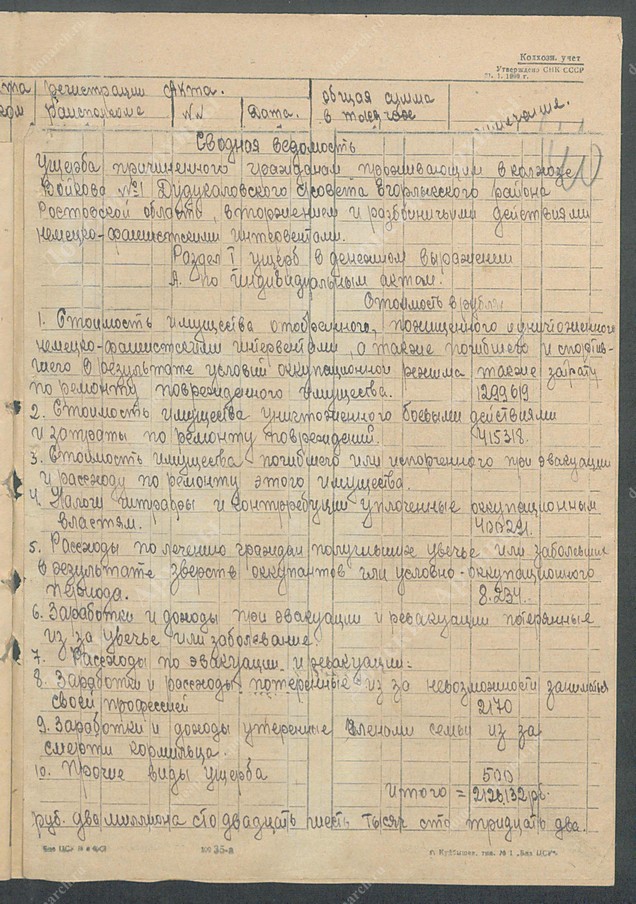 Колхозн. учет
Утверждена СНК СССР
регистрации Акта.
общая сумма
Дата.
Сводная ведомость
110
ущерба причиненного гражданам, проживающим в колхозе
Войкова №1 Дудукаловского с/совета Егорлыкского района
Ростовской область, вторжением и разбойничьими действиями
немецко-фашистскими интервентами.
Раздел I ущерб в денежном выражении
А. по индивидуальным актам.
Стоимость в рублях
1. Стоимость имущества отобранного, похищенного и уничтоженного
немецко-фашистскими интервентами, а также погибшего и
в результате условий оккупационного режима также затрату
по ремонту поврежденного имущества. 1299619
2. Стоимость имущества уничтоженного боевыми действиями
и затраты по ремонту повреждений. 415318.
3. Стоимость имущества погибшего или испорченного при эвакуации
и расходу по ремонту этого имущества.
4. Налоги штрафы и контребуции уплоченные оккупационным
властям. 400291.
5. Расходы по лечению граждан получившие увечье или заболевшие
в результате зверств оккупантов или условно-оккупационного
периода. 8.234.
6. Заработки и доходы при эвакуации и реэвакуации потерянные
из за увечье или заболевание.
7. Расходы по эвакуации и реэвакуации.
8. Заработки и расходы потеренные из за невозможности заниматься
своей професией 2170
9. Заработки и доходы утеренные членами семьи из за
смерти кормильца.
10. Прочие виды ущерба 500
Итого = 2126132 рб.
руб. два миллиона сто двадцать шесть тысяч сто тридцать два.
№ 35-а
г. Куйбышев, тип. № 1